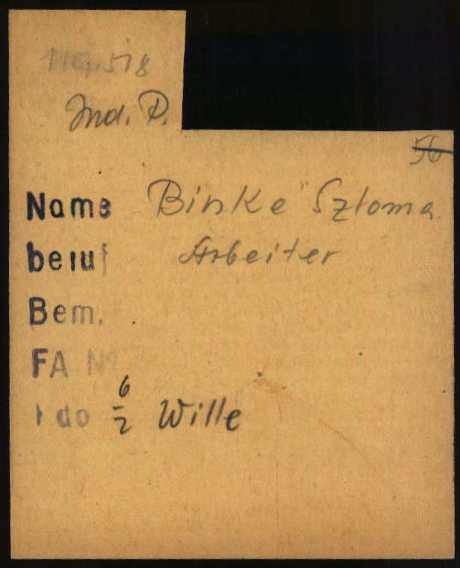 Jnd. P.
56
Name Binke Szloma
beruf Arbeiter
Bem.
FA No
do 6/2 Wille